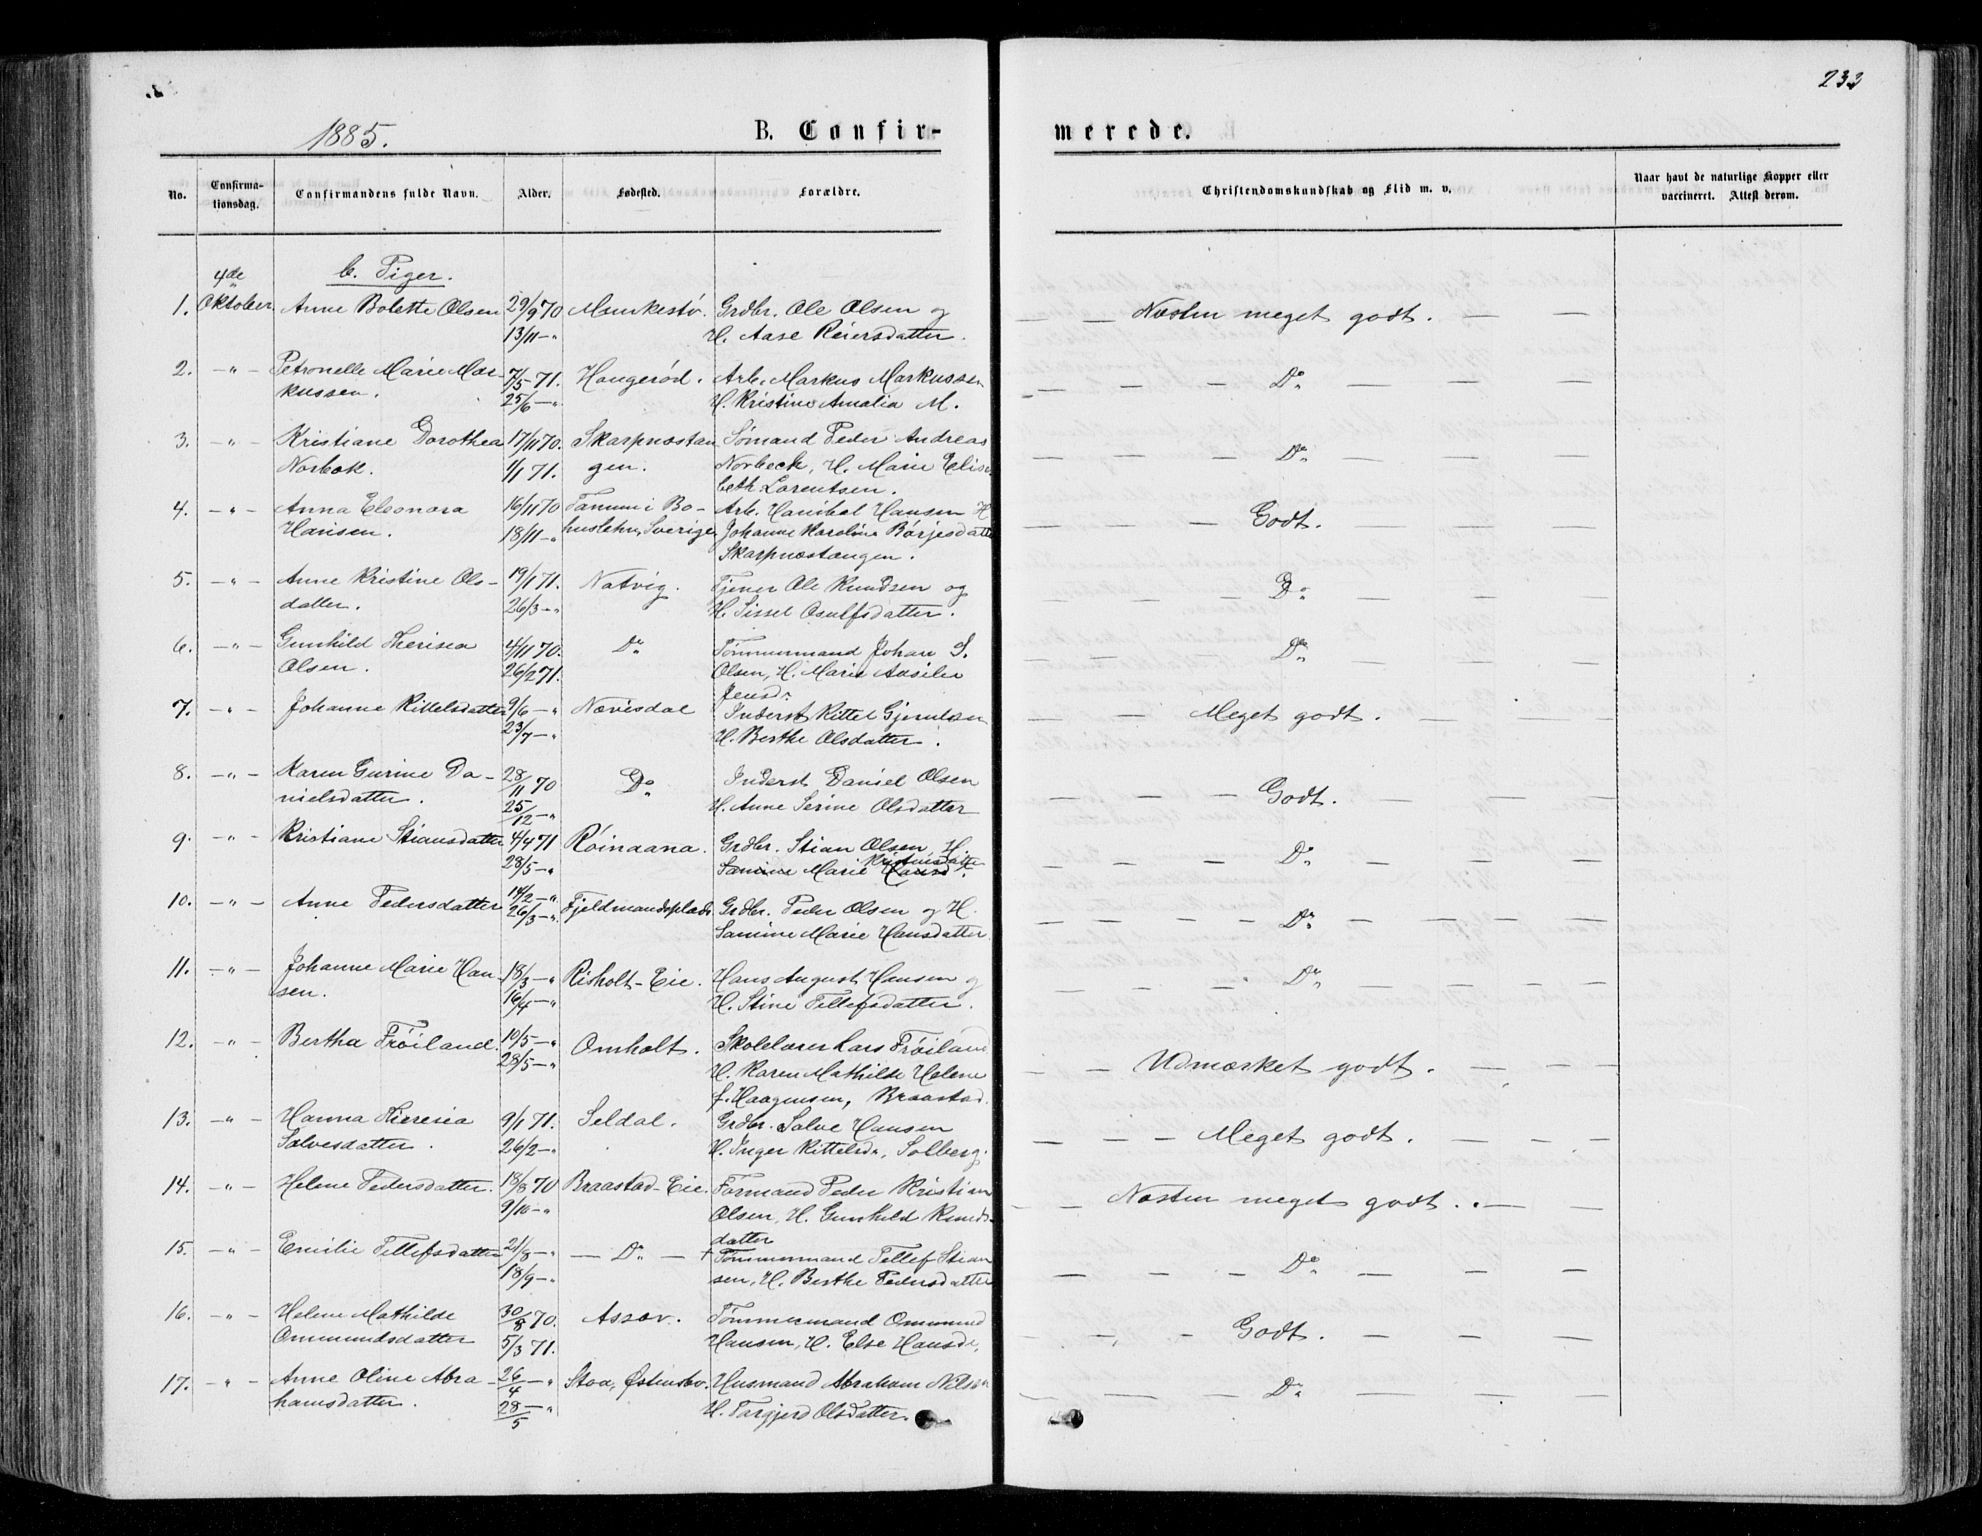 233
1885.
B. Confir-
merede.
No.
Confirma-
tionsdag.
Confirmandens fulde Navn.
Alder.
Fødested.
Forældre.
Christendomskundskab og Flid m. v.
Naar havt de naturlige Kopper eller
vaccineret. Attest derom.
4de b. Piger.
1. Oktober Anne Bolette Olsen 29/9 70 Munkestø. Grdbr. Ole Olsen og — — Næsten meget godt. — —
13/11 – " H. Aase Reiersdatter.
2. – " – Petronelle Marie Mar- 7/5 – 71. Haugerød. Arb. Markus Markussen — — — Do — — —
kussen. 25/6 – " H. Kristine Amalia M.
3. – " – Kristiane Dorothea 17/11 70. Skarpnæstan Sømand Peder Andreas — — — Do — — —
Norbæk. 1/1 71. gen. Norbeck, H. Marie Elisa
beth Lorentsen.
4. – " – Anna Eleonora 16/11 70 Tanum i Bo- Arb. Hanibal Hansen H — — — Godt. — — —
Hansen. 18/11 – " huslehn, Sverige Johanne Karoline Børjesdatte
Skarpnæstangen.
5. – " – Anne Kristine Ols- 19/1 71. Natvig. Tjener Ole Knudsen og — — — Do — — —
datter. 26/3 – " H. Sissel Osulfsdatter.
6. – " – Gunhild Therisea 4/11 70. Do Tømmermand Johan S. — — — Do — — —
Olsen. 26/2 71. Olsen, H. Marie
Jensd.
7. – " – Johanne Kittelsdatter 9/6 – " Nævisdal Inderst Kittel Gjerulsen — — Meget godt. — — —
23/7 – " H. Berthe Olsdatter.
8. – " – Karen Gurine Da- 28/11 70 Do Inderst Daniel Olsen — — — Godt. — — —
nielsdatter. 25/12 – " H. Anne Serine Olsdatter
9. – " – Kristiane Stiansdatter 4/4 71 Røindana. Grdbr. Stian Olsen H. — — — Do — — —
28/5 – " Samine Marie Hansd.
10. – " – Anne Pedersdatter 14/2 – " Fjeldmandsplads Grdbr. Peder Olsen og H. — — — Do — — —
26/3 – " Samine Marie Hansdatter.
11. – " – Johanne Marie Han 18/3 – " Risholt-Eie. Hans August Hansen og — — — Do — — —
sen. 16/4 – " H. Stine Tellefsdatter.
12. – " – Bertha Frøiland. 10/5 – " Omholt. Skolelærer Lars Frøiland — — Udmærket godt. — — —
28/5 – " H. Karen Mathilde Helene
f. Haagensen, Braastad.
13. – " – Hanna Theresia 9/1 71. Seldal. Grdbr. Salve Hansen — — — Meget godt. — — —
Salvesdatter. 26/2 – " H. Inger Kittelsd., Solberg.
14. – " – Helene Pedersdatter. 18/8 70 Braastad-Eie. Formand Peder Kristian — — Næsten meget godt. — —
9/10 – " Olsen, H. Gunhild Knuds-
datter
15. – " – Emilie Tellefsdatter 21/8 – " — Do — + Tømmermand Tellef Stian — — — Do — — —
18/9 – " sen, H. Berthe Pedersdatter
16. – " – Helene Mathilde 30/8 70. Assæv. Tømmermand Ommund — — — Godt. — — —
Ommundsdatter 5/3 71. Hansen, H. Else Hansd.
17. – " – Anne Oline Abra- 26/4 – " Stoa, Østensbo. Husmand Abraham Nilsen — — — Do — — —
hamsdatter. 28/5 – " H. Torgjerd Olsdatter.